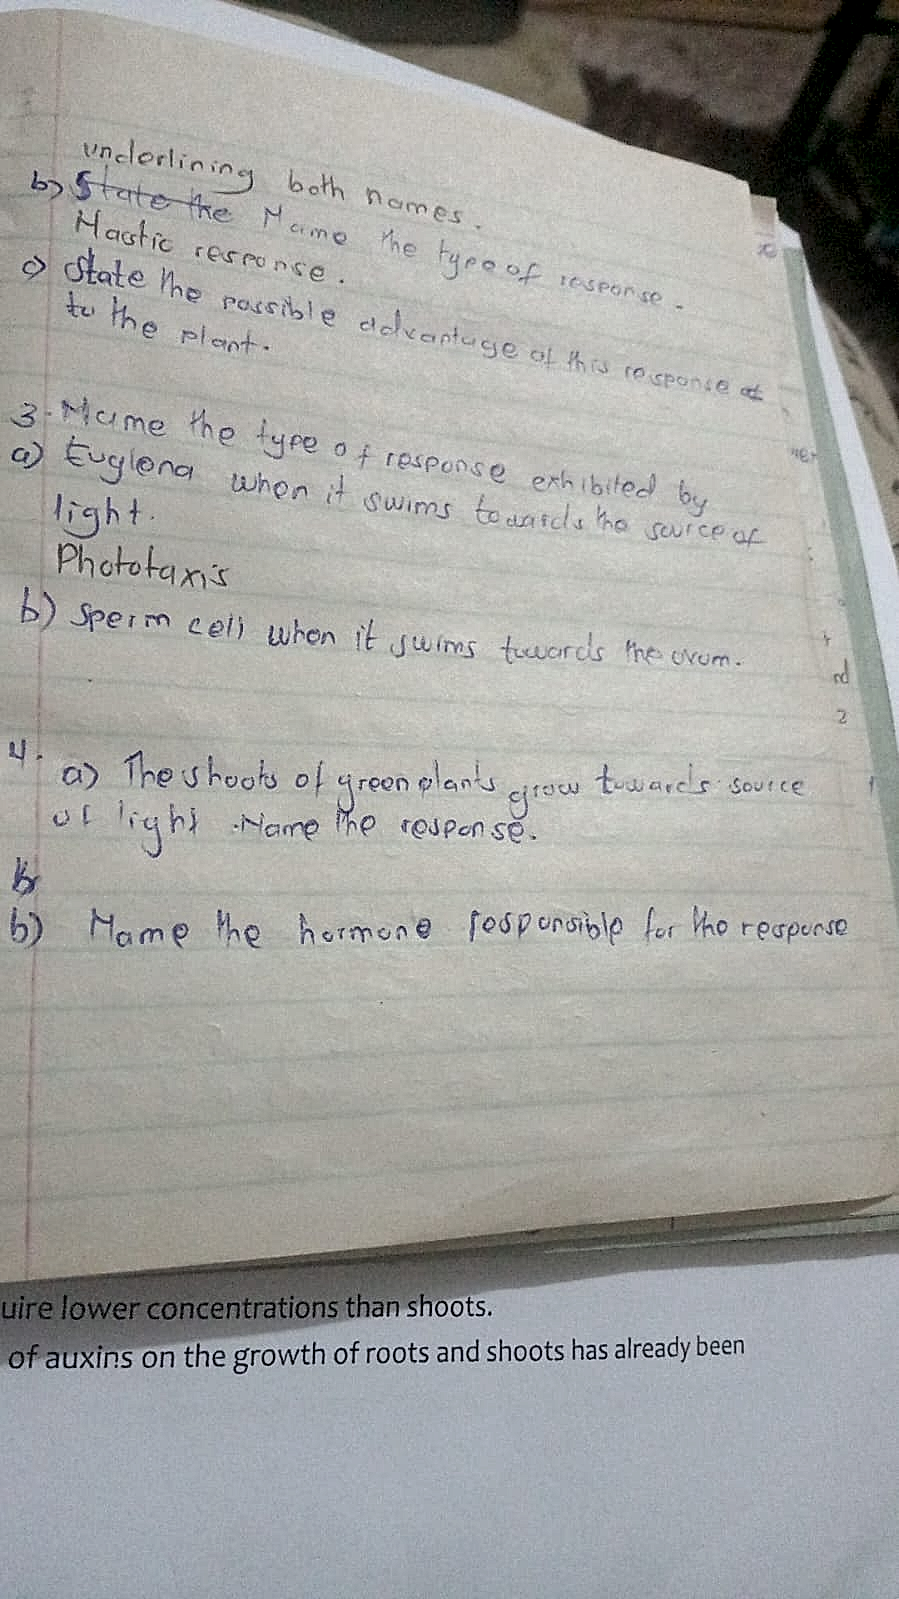 underlining both names.
b) State the Name the type of response.
Nastic response.
c) State the possible advantage of this response of
to the plant.
3. Name the type of response exhibited by
a) Euglena when it swims towards the source of
light.
Phototaxis
b) Sperm cell when it swims towards the ovum.
4.
a) The shoots of green plants grow towards source
of light. Name the response.
b) Name the hormone responsible for the response
nd
2
uire lower concentrations than shoots.
of auxins on the growth of roots and shoots has already been